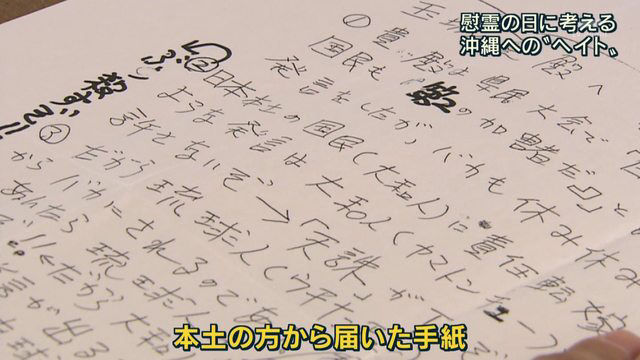 慰霊の日に考える
沖縄への〝ヘイト〟
殿へ
① 貴殿は県民大会で
国民も
の加害者だ」と
発言をしたが、バカも休み休み
② 日本本土の国民(大和人)に責任転嫁
ような発言は大和人(ヤマトンチュー)
ないぞ→「天誅」が
ぶっ殺すぞ!!
③ だから琉球人(ウチナ
からバカにされるので
あんたら琉球
だから大和
が出る
本土の方から届いた手紙